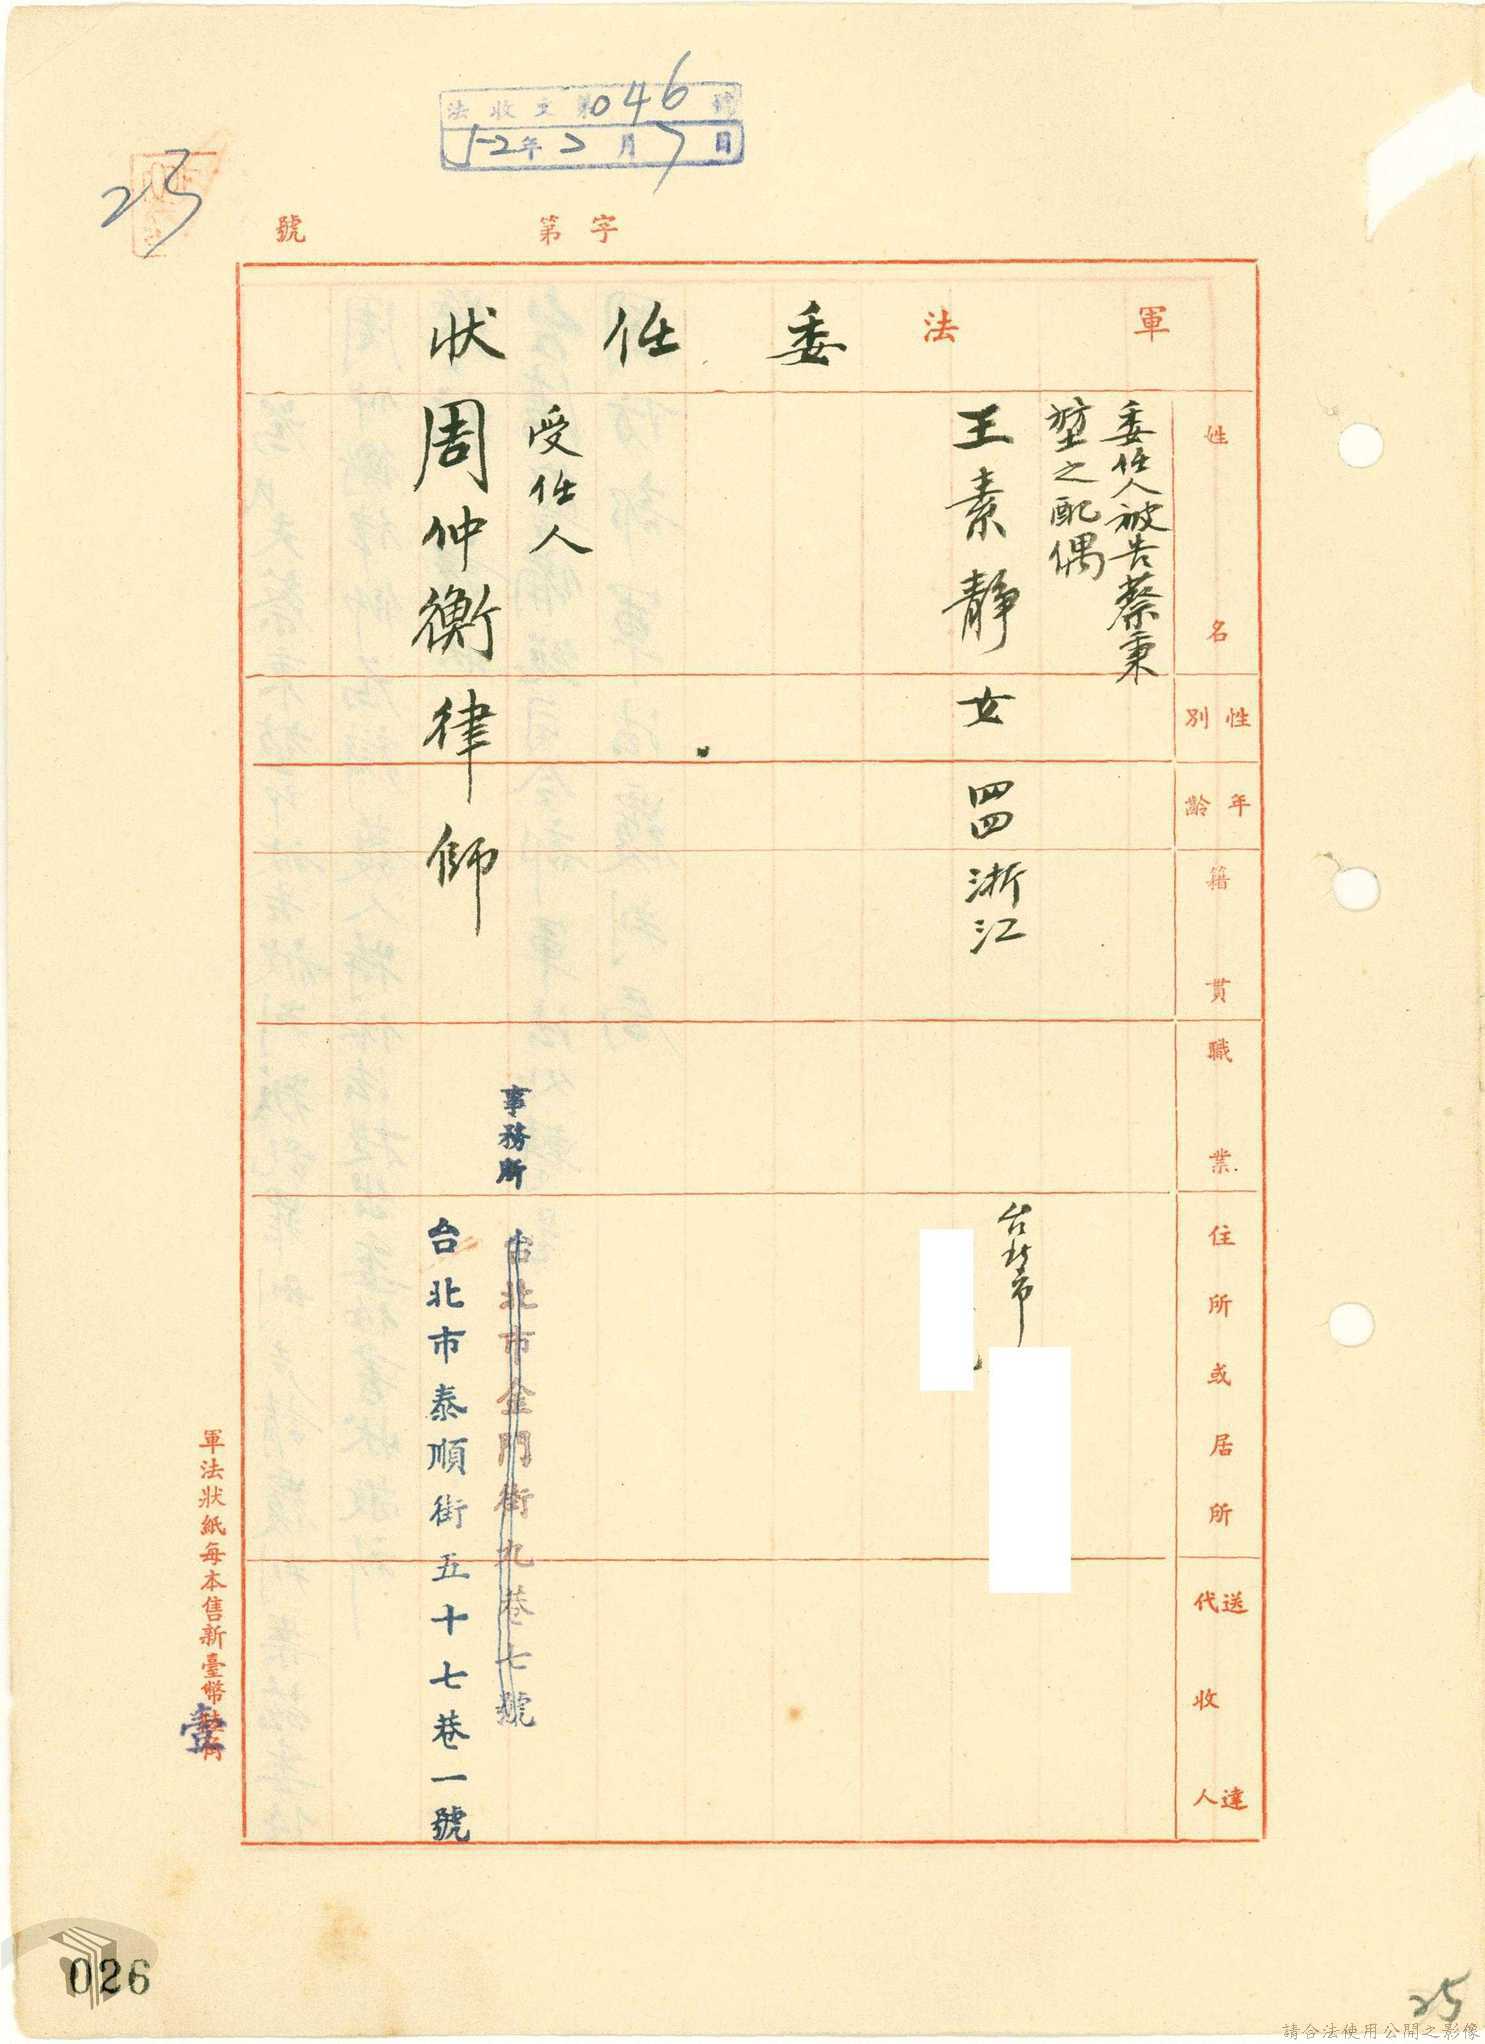 法收文第046號
52年2月7日
25
字第 號
軍法委任狀
姓名
性別
年齡
籍貫
職業
住所或居所
送達代收人
委任人被告蔡秉
堃之配偶
王素靜 女 四四 浙江
台北市
受任人
周仲衡律師
事務所
台北市金門街九巷七號
台北市泰順街五十七巷一號
軍法狀紙每本售新臺幣
壹
026
25
請合法使用公開之影像